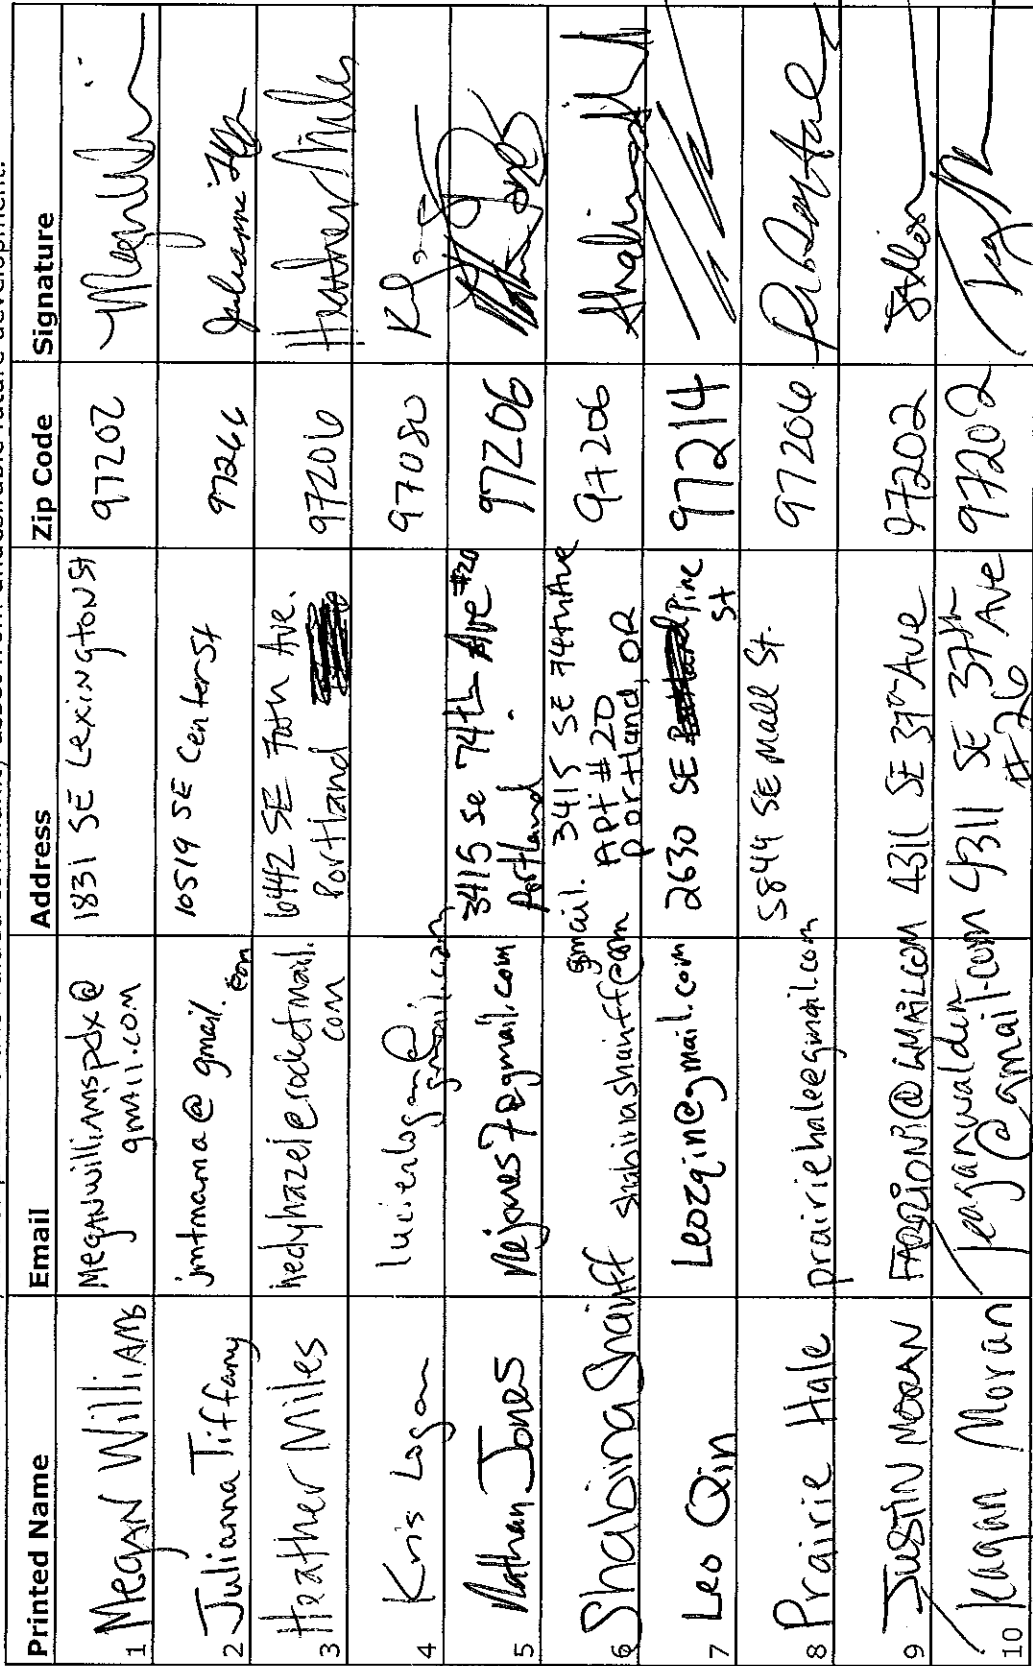 Printed Name Email Address Zip Code Signature
1 Megan Williams Meganwilliamspdx@ gmail.com 1831 SE Lexington St 97202
2 Julianna Tiffany jmtmama@gmail.com 10519 SE Center St 97266
3 Heather Miles hedyhazel@rocketmail.com 6442 SE Ave. Portland 97206 Heather Miles
4 Kris Logan lucienlogan@gmail.com 97080
5 Nathan Jones Nejones7@gmail.com 3415 se 74th Ave #20 Portland 97206
6 Shabina Shariff shabinashariff@gmail.com 3415 SE 74th Ave Apt #20 Portland, OR 97206
7 Leo Qin Leozqin@gmail.com 2630 SE Pine St 97214
8 Prairie Hale prairiehale@gmail.com 5844 SE Mall St. 97206
9 Justin Moran @GMAIL.COM 4311 SE 37th Ave 97202
10 Keagan Moran @gmail.com 4311 SE 37th Ave #26 97202